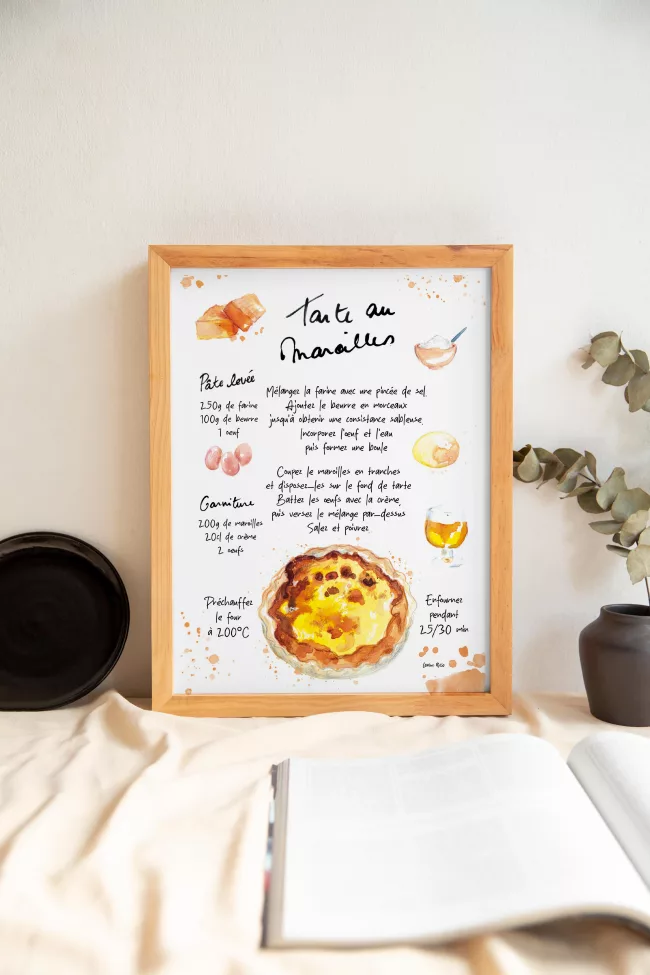 Tarte au
Maroilles
Pâte levée
250g de farine
100g de beurre
1 oeuf
Mélangez la farine avec une pincée de sel.
Ajoutez le beurre en morceaux
jusqu'à obtenir une consistance sableuse.
Incorporez l'œuf et l'eau
puis formez une boule
Coupez le maroilles en tranches
et disposez-les sur le fond de tarte
Battez les œufs avec la crème,
puis versez le mélange par-dessus
Salez et poivrez
Garniture
200g de maroilles
20cl de crème
2 oeufs
Préchauffez
le four
à 200°C
Enfournez
pendant
25/30 min